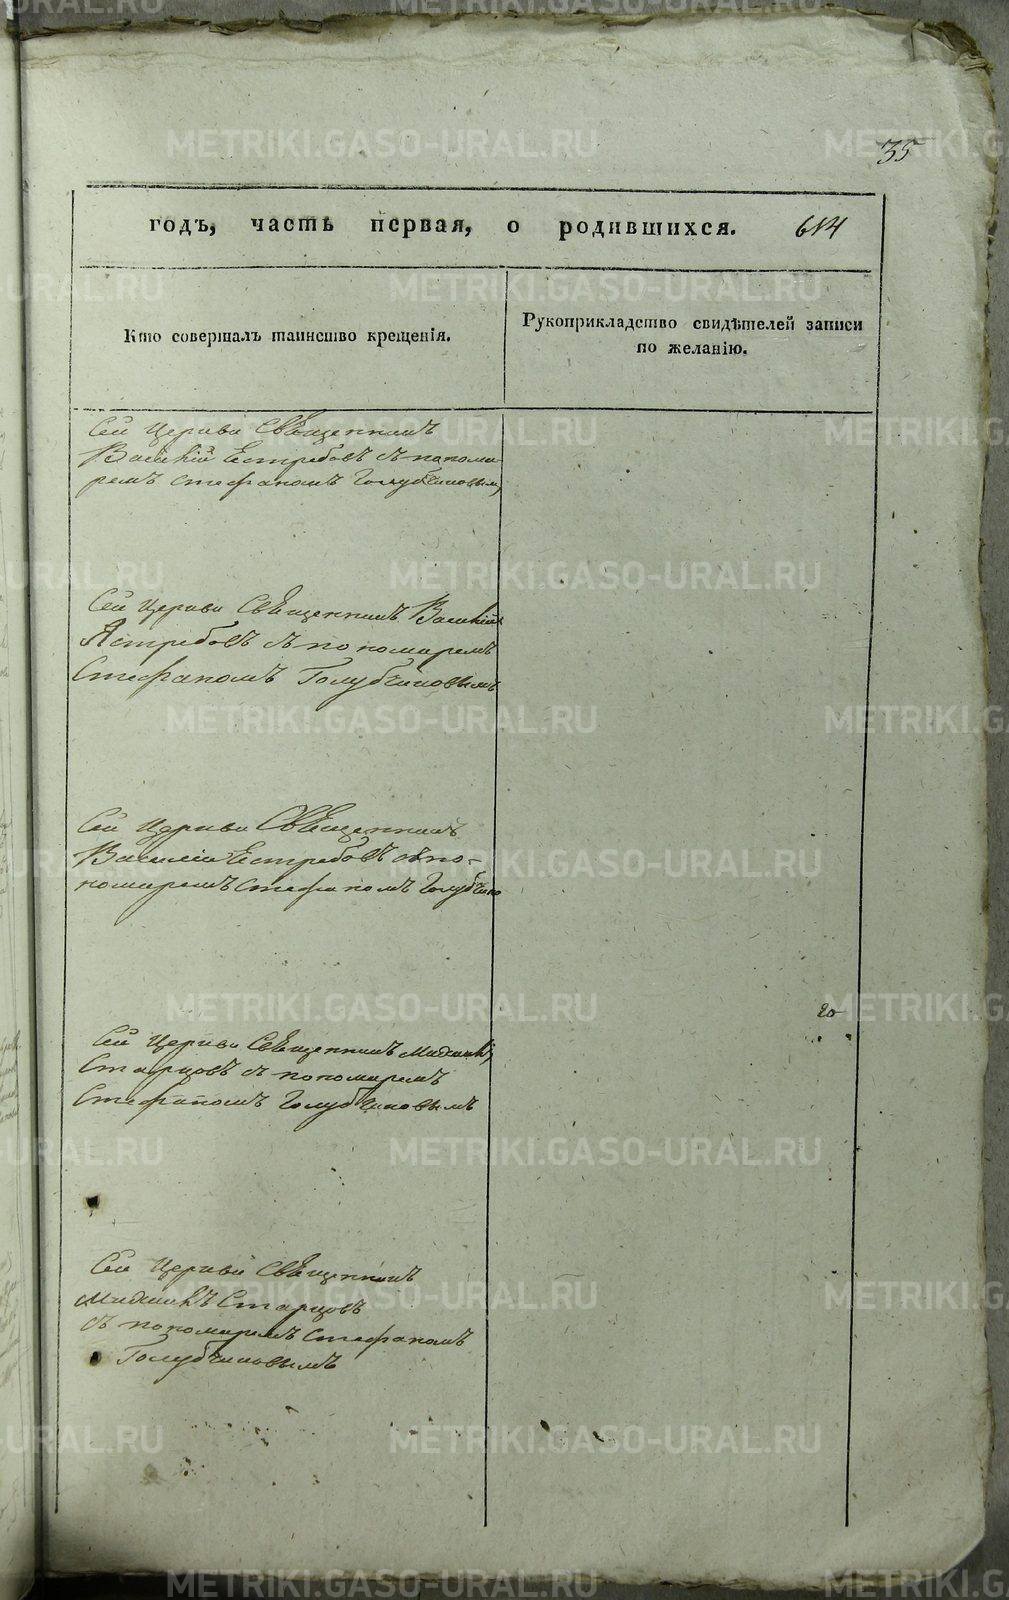 35
годъ, часть первая, о родившихся. 614
Кто совершалъ таинство крещенія.
Рукоприкладство свидѣтелей записи
по желанію.
Сей Церкви Священникъ
Василій Естребовъ съ понома-
ремъ Стефаномъ Голубчиковым
Сей Церкви Священникъ Василій
Ястребовъ съ пономаремъ
Стефаномъ Голубчиковымъ
Сей Церкви Священникъ
Василій Естребовъ съ по-
номаремъ Стефаномъ Голубчико
20
Сей Церкви Священникъ
Старцовъ съ пономаремъ
Стефаномъ Голубчиковымъ
Сей Церкви Священникъ
Старцовъ
съ пономаремъ Стефаномъ
Голубчиковымъ
METRIKI.GASO-URAL.RU